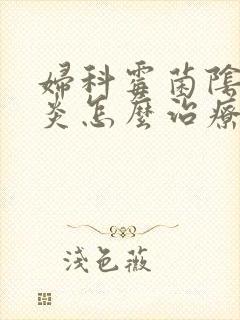 婦科霉菌陰
炎怎麼治療
淺色薇